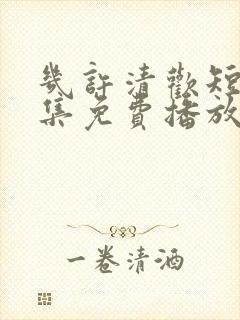 幾許清歡短
集免費播放
一卷清酒